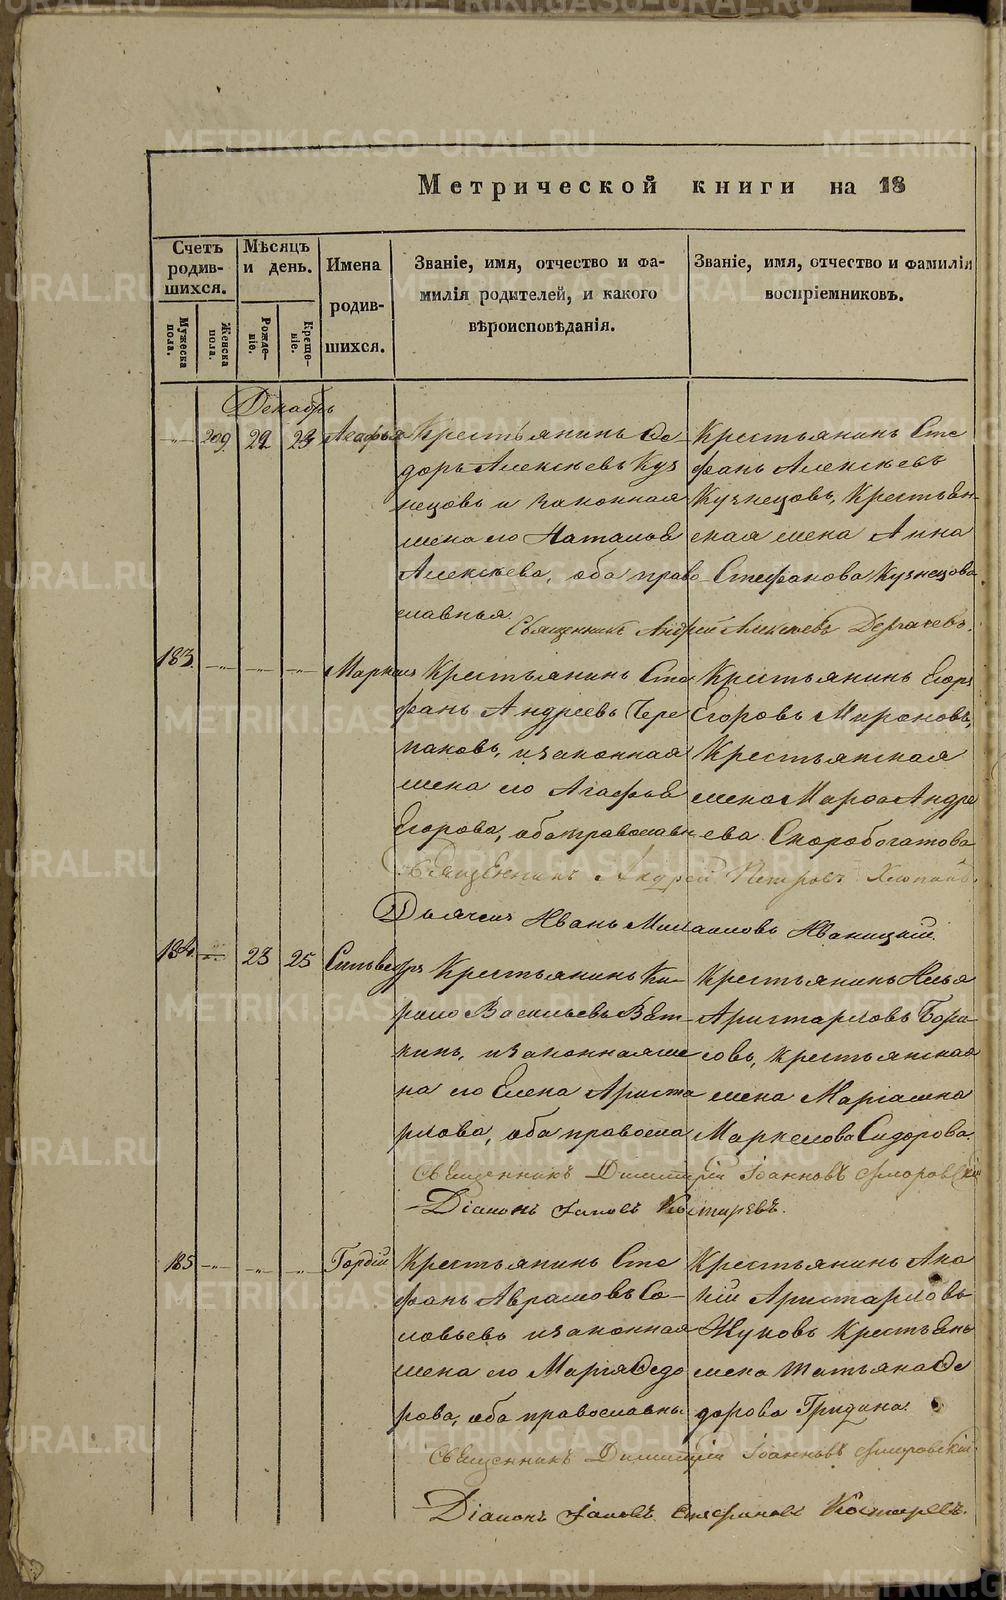 Метрической книги на 18
Счетъ родив-шихся.
Мужеска пола.
Женска пола.
Мѣсяцъ и день.
Рожде-ніе.
Креще-ніе.
Имена родив-шихся.
Званіе, имя, отчество и фа-
милія родителей, и какого
вѣроисповѣданія.
Званіе, имя, отчество и фамилія
воспріемниковъ.
Декабрь
209. 22 23 Агафья
Крестьянинъ Ѳе-
доръ Алексѣевъ Куз
нецовъ и законная
жена его Наталья
Алексѣева, оба право
славныя.
Крестьянинъ Сте
фанъ Алексѣевъ
Кузнецовъ, Крестьян-
ская жена Анна
Стефанова Кузнецова
Священникъ Андрей Алексѣевъ Дергачевъ.
183.
Крестьянинъ Сте
фанъ Андреевъ Чере
пановъ, и законная
жена его Агафья
Егорова, оба православн
Крестьянинъ Егоръ
Егоровъ Мироновъ,
Крестьянская
жена Марѳа Андре
ева Скоробогатова
Священникъ Андрей Петровъ
Дьячекъ Иванъ Михаиловъ Иваницкій.
184. 23 25 Сильвестръ
Крестьянинъ Ки-
рило Васильевъ Вят-
кинъ, и законная же
на его Елена Ариста
рхова, оба правосла
Крестьянинъ Илья
Аристарховъ Бори-
совъ, крестьянская
жена Маріамна
Маркелова Сидорова.
Священникъ Димитрій Іоанновъ Флоровскій
Діаконъ Іаковъ Костыревъ.
185 Гордій
Крестьянинъ Сте
фанъ Аврамовъ Со-
ловьевъ и законная
жена его Марія Ѳедо
рова, оба православны
Крестьянинъ Ака
кій Аристарховъ
Жуковъ Крестьянъ
жена Татьяна Ѳе
дорова Гридина.
Священникъ Димитрій Іоанновъ Флоровскій
Діаконъ Іаковъ Стефановъ Костыревъ.
METRIKI.GASO-URAL.RU